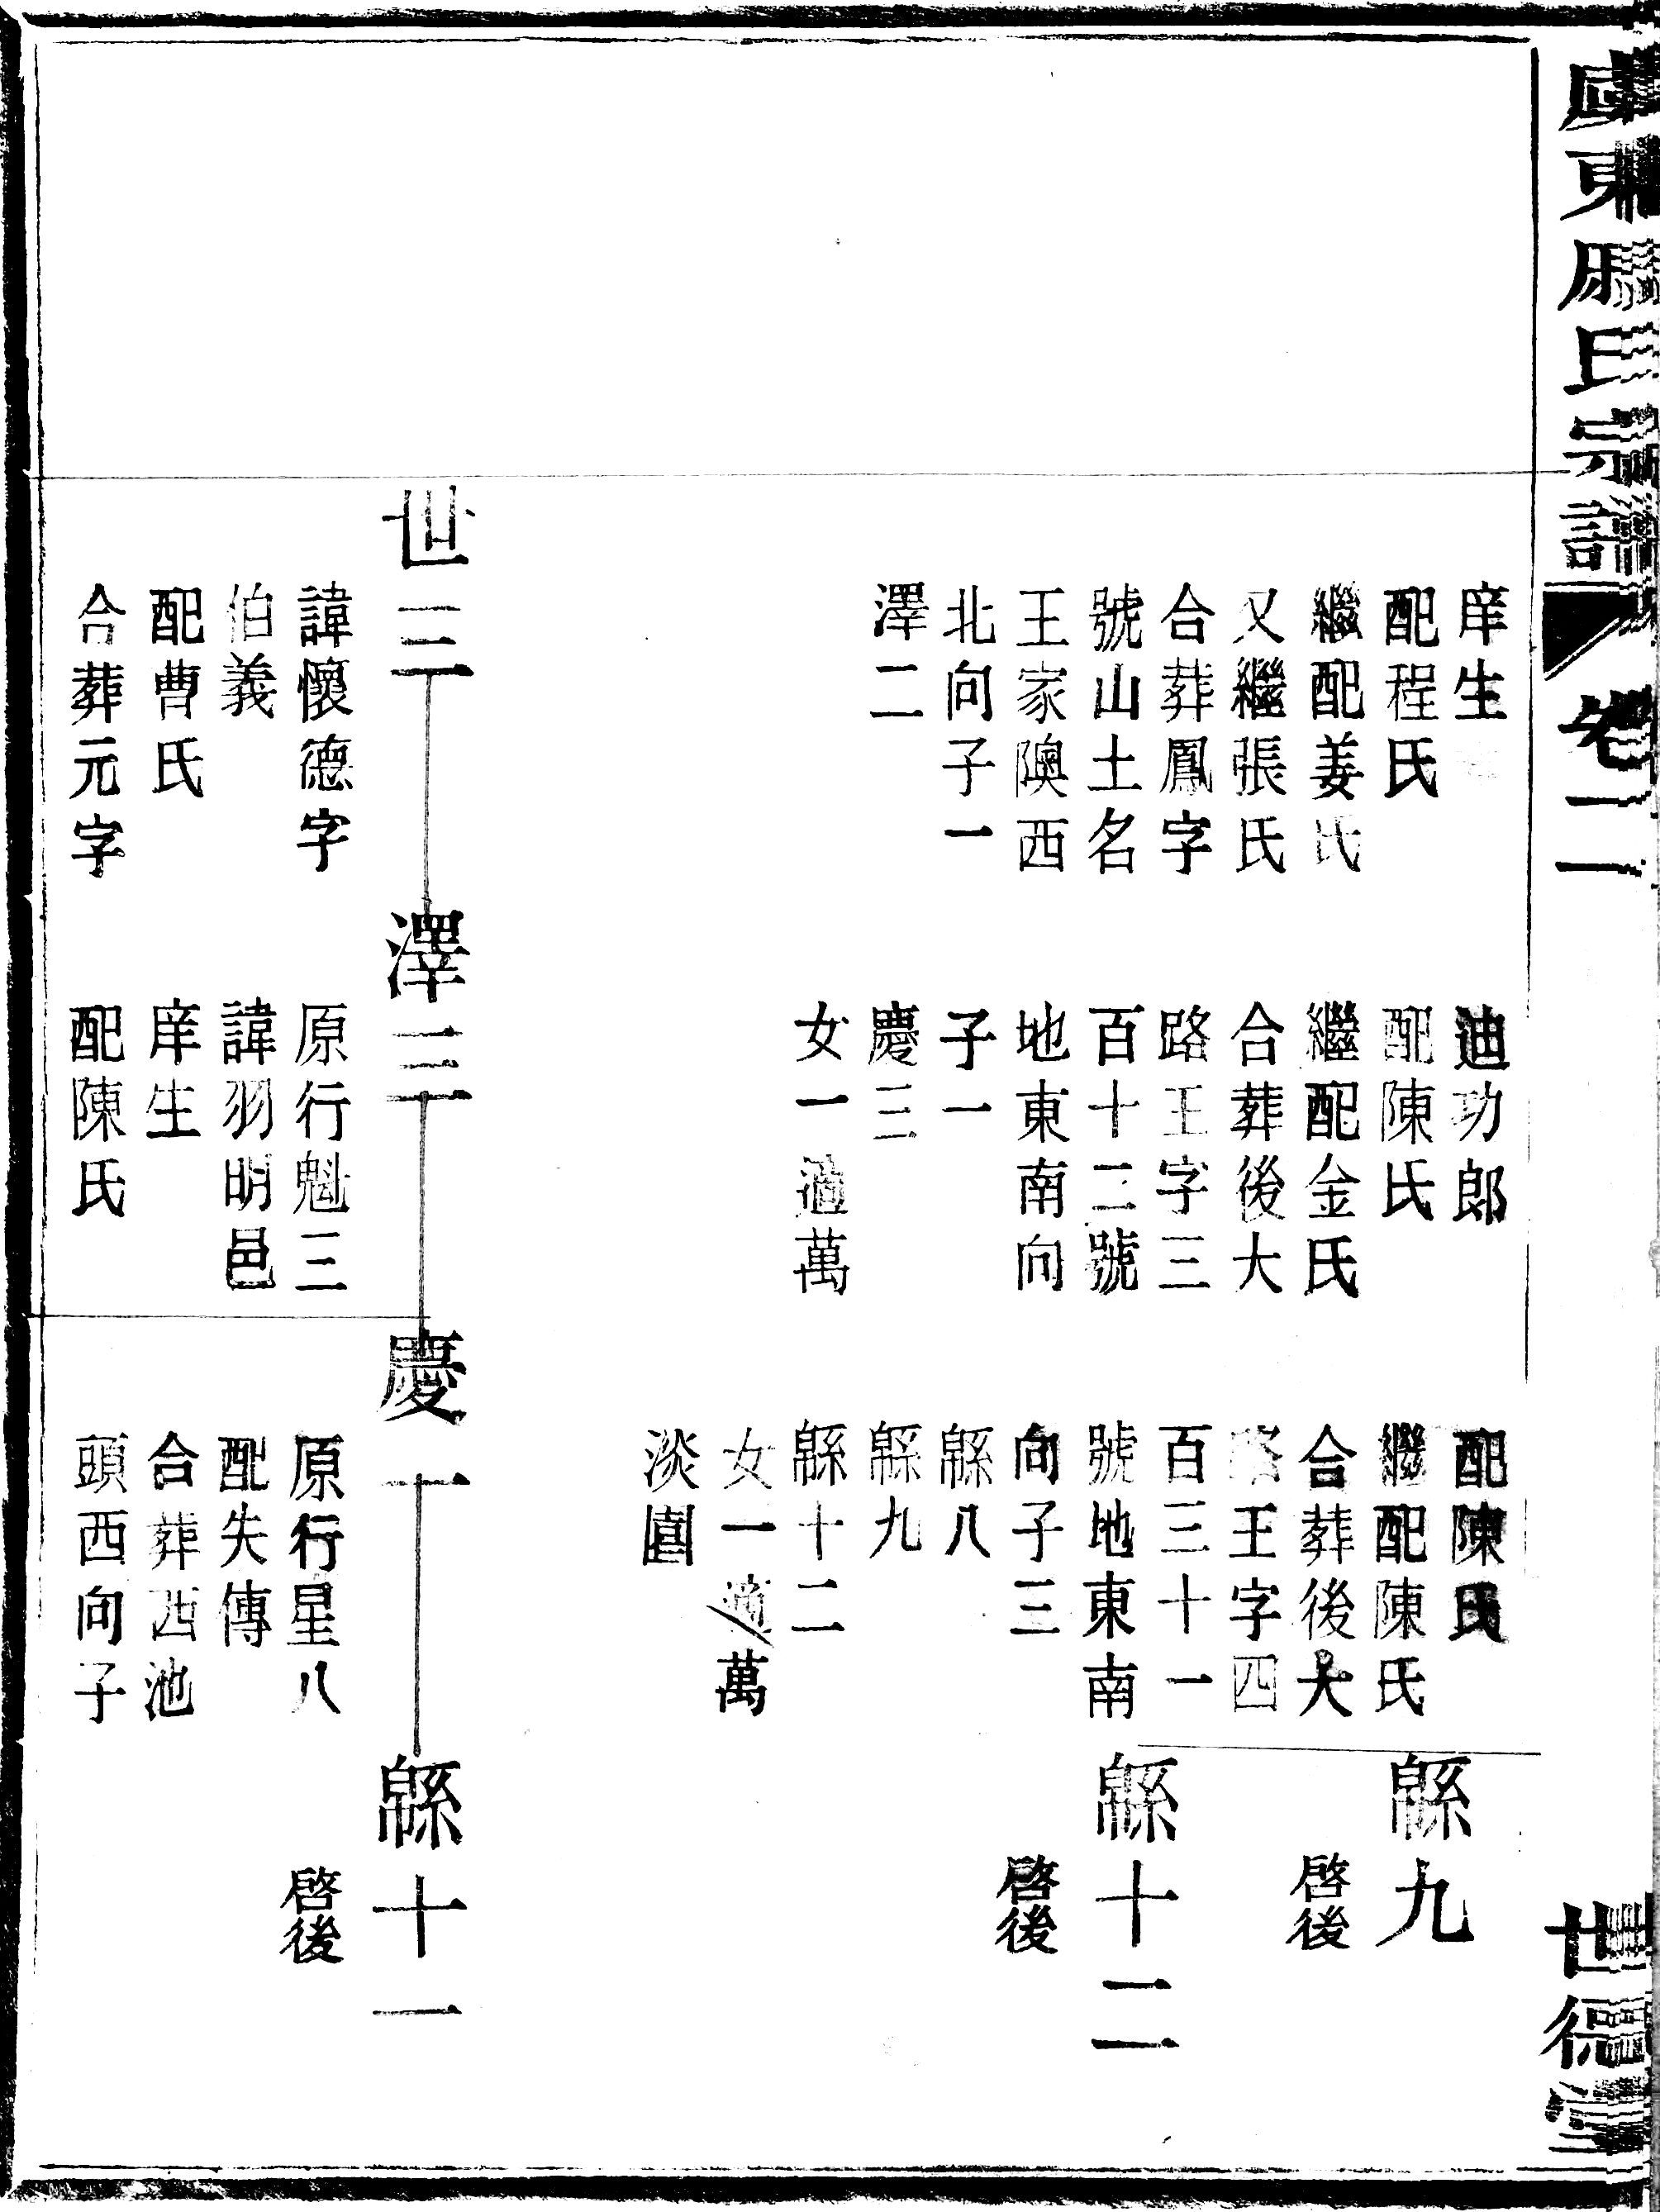 氏宗譜
卷二
庠生
配程氏
繼配姜氏
又繼張氏
合葬鳳字
號山土名
王家隩西
北向子一
澤二
迪功郎
配陳氏
繼配金氏
合葬後大
路王字三
百十二號
地東南向
子一
慶三
女一適萬
配陳氏
繼配陳氏
合葬後大
路王字四
百三十一
號地東南
向子三
緜八
緜九
緜十二
女一適萬
淡園
緜九
啓後
緜十二
啓後
世三
諱懷德字
伯義
配曹氏
合葬元字
澤三
原行魁三
諱羽明邑
庠生
配陳氏
慶一
原行星八
配失傳
合葬西池
頭西向子
緜十一
啓後
世德堂